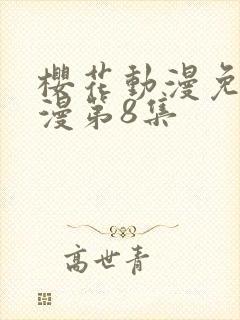 櫻花動漫免
漫第8集
高世青